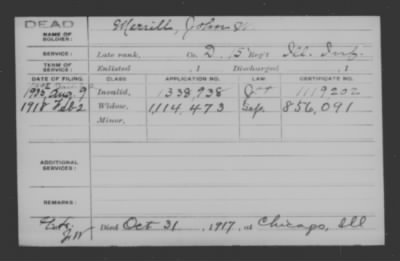 DEAD
NAME OF SOLDIER: Merrill, John
SERVICE: Late rank, Co. D, 15 Reg't Ill. Inf.
TERM OF SERVICE: Enlisted , 1 Discharged , 1
DATE OF FILING. CLASS. APPLICATION NO. LAW. CERTIFICATE NO.
Aug. 9 Invalid, 1,338,938 1119202
1918 Feb 2 Widow, 1,114,473 856,091
Minor,
ADDITIONAL SERVICES:
REMARKS:
Died Oct 31, 1917, at Chicago, Ill